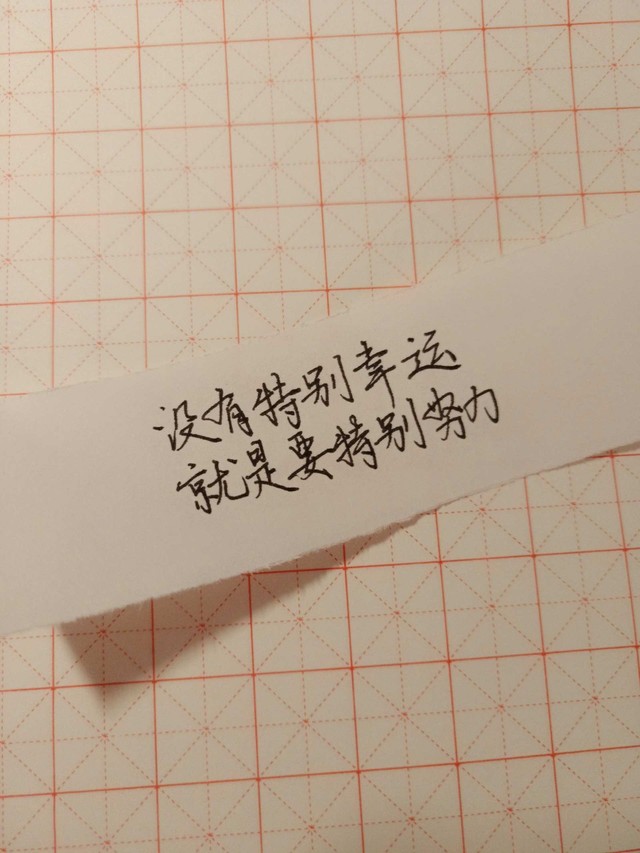 没有特别幸运
就是要特别努力